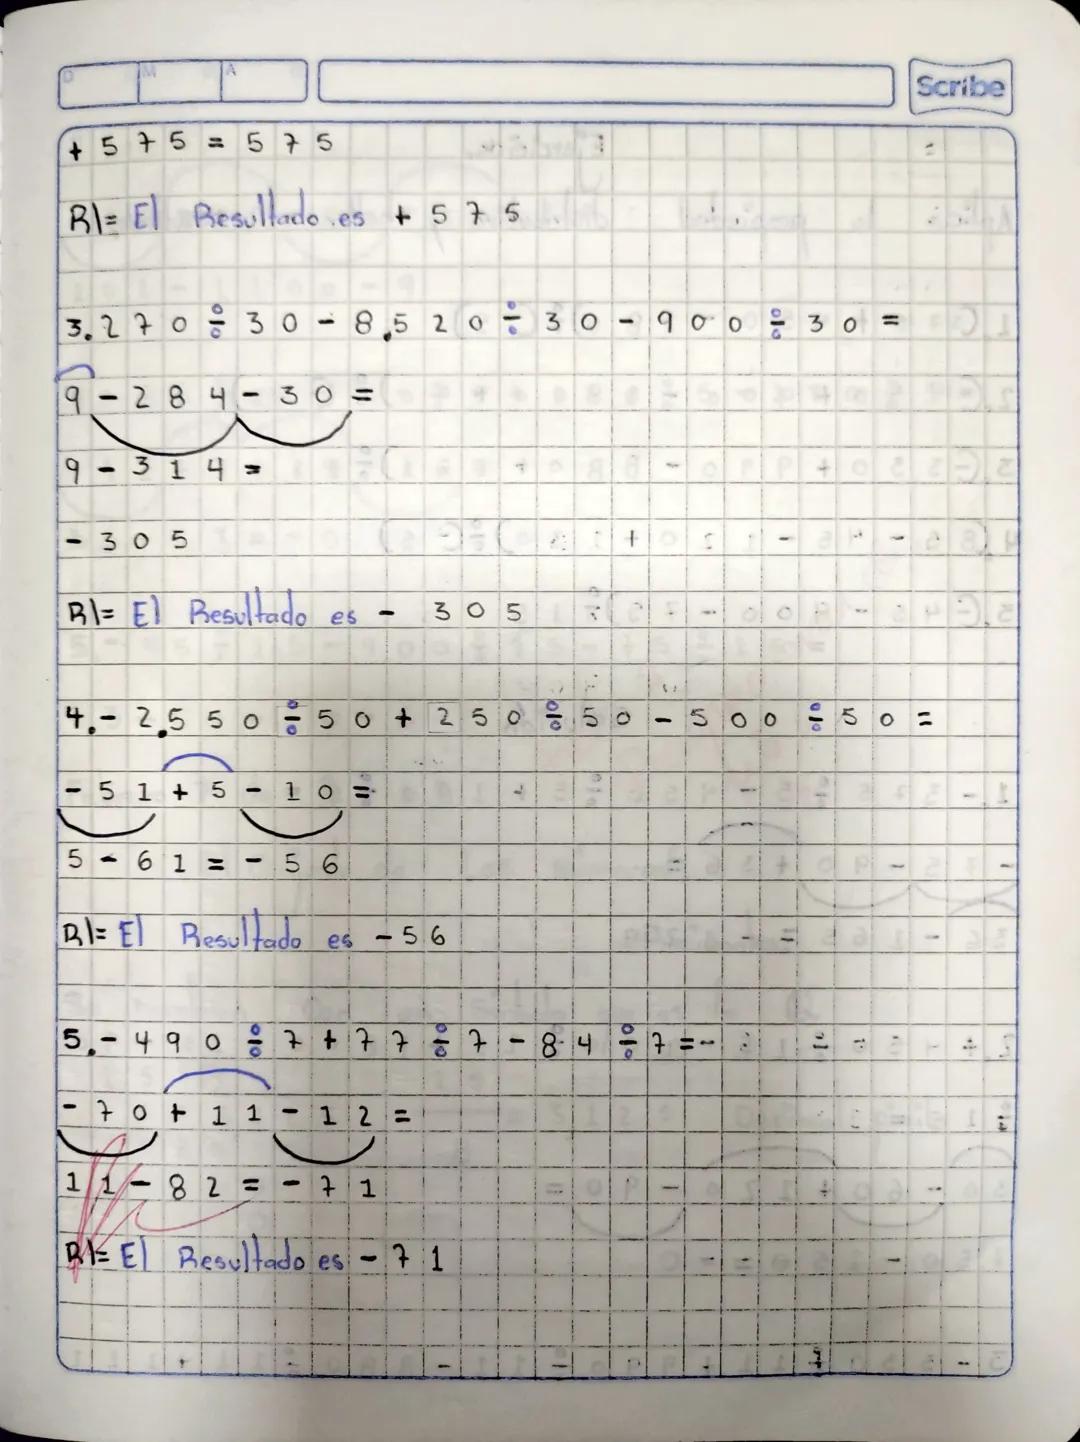 D M A
Scribe
+ 575 = 575
R/= El Resultado es + 575
3. 270 ÷ 30 - 8,520 ÷ 30 - 900 ÷ 30 =
9 - 284 - 30 =
9 - 314 =
- 305
R/= El Resultado es - 305
4. - 2,550 ÷ 50 + 250 ÷ 50 - 500 ÷ 50 =
- 51 + 5 - 10 =
5 - 61 = - 56
R/= El Resultado es - 56
5. - 490 ÷ 7 + 77 ÷ 7 - 84 ÷ 7 =
- 70 + 11 - 12 =
11 - 82 = - 71
R/= El Resultado es - 71